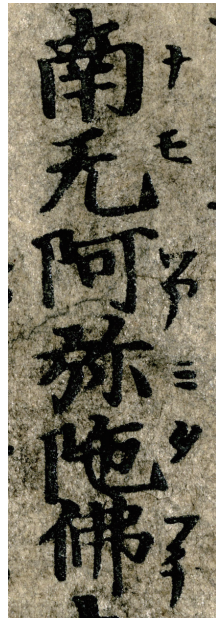 南无阿弥陁佛
ナモ ミタ